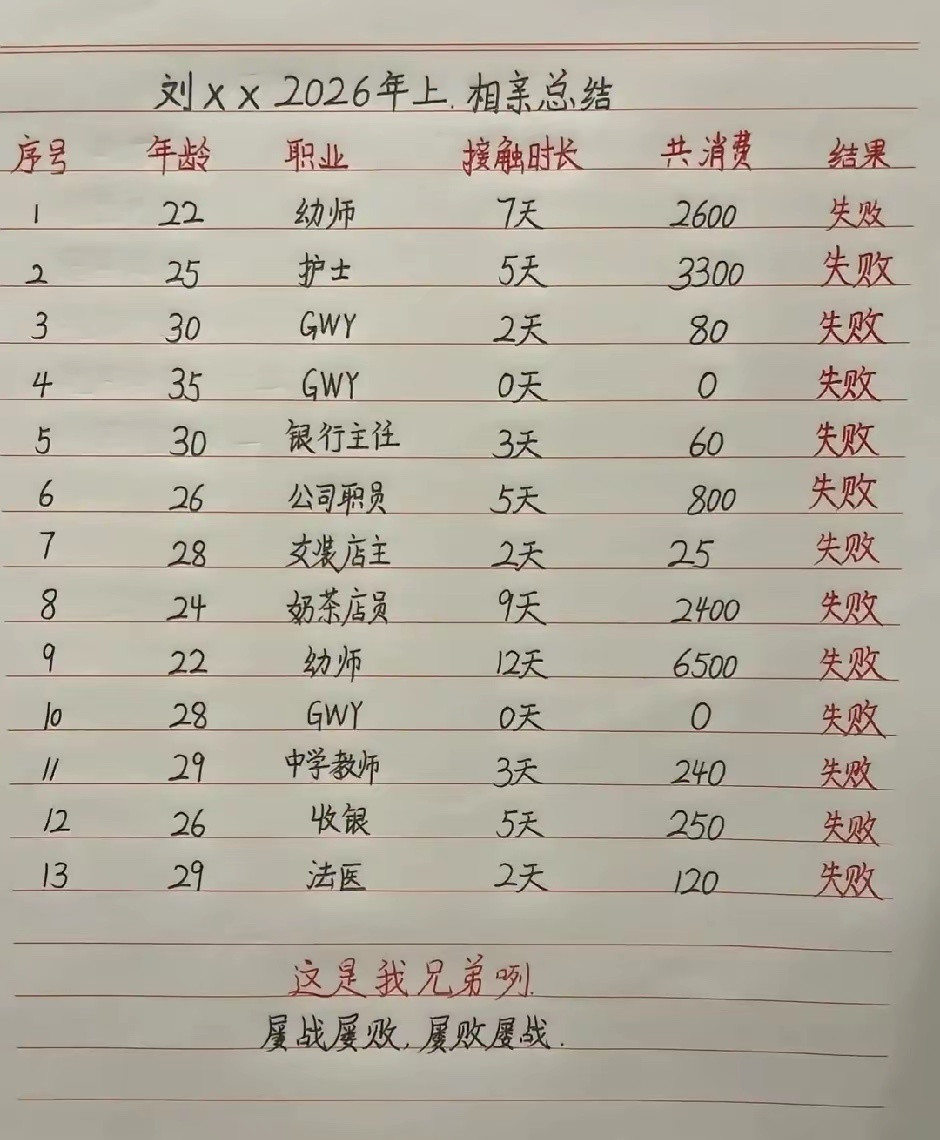 刘xx2026年上.相亲总结
序号 年龄 职业 接触时长 共消费 结果
1 22 幼师 7天 2600 失败
2 25 护士 5天 3300 失败
3 30 GWY 2天 80 失败
4 35 GWY 0天 0 失败
5 30 银行主任 3天 60 失败
6 26 公司职员 5天 800 失败
7 28 女装店主 2天 25 失败
8 24 奶茶店员 9天 2400 失败
9 22 幼师 12天 6500 失败
10 28 GWY 0天 0 失败
11 29 中学教师 3天 240 失败
12 26 收银 5天 250 失败
13 29 法医 2天 120 失败
这是我兄弟咧.
屡战屡败,屡败屡战.